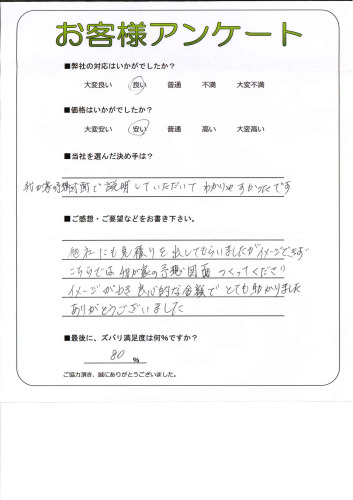 お客様アンケート
■弊社の対応はいかがでしたか?
大変良い 良い 普通 不満 大変不満
■価格はいかがでしたか?
大変安い 安い 普通 高い 大変高い
■当社を選んだ決め手は?
我が家の予想図面で説明していただいてわかりやすかったです
■ご感想・ご要望などをお書き下さい。
他社にも見積りを出してもらいましたがイメージできず
こちらでは我が家の予想図面つくってくださり
イメージがわき良心的な金額でとても助かりました
ありがとうございました
■最後に、ズバリ満足度は何%ですか?
80 %
ご協力頂き、誠にありがとうございました。